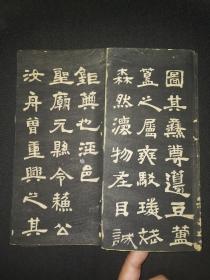 圖其彝尊邊豆簠
簋之屬爽
森然物在目誠
鉅典也邑
聖廟元縣令蘓公
汝舟曾重興之其